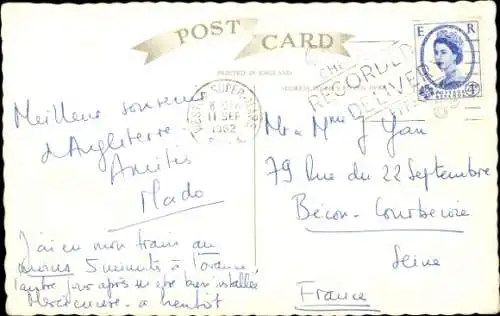 POST CARD
PRINTED IN ENGLAND
E R
POSTAGE
4D
RECORDED
DELIVERY
SUPER-MARE
11 SEP
1962
Meilleur souvenir
d'Angleterre.
Amitiés
Mado
J'ai eu mon train au
moins 5 minutes à l'avance
l'autre jour après m'être bien installée
à bientôt
Mr & Mme J
79 Rue du 22 Septembre
Bécon-Courbevoie
Seine
France